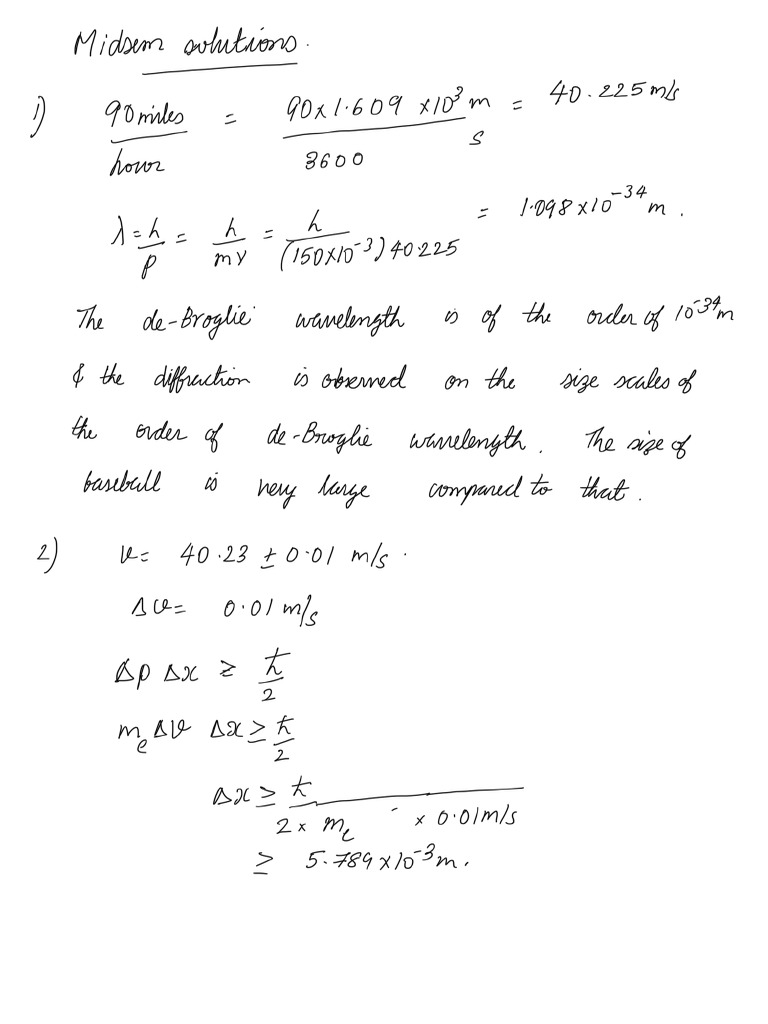 Midsem solutions.
1) 90 miles/hour = 90 x 1.609 x 10³ m / 3600 s = 40.225 m/s
λ = h/p = h/mv = h/(150x10⁻³) 40.225 = 1.098 x 10⁻³⁴ m.
The de-Broglie wavelength is of the order of 10⁻³⁴ m
& the diffraction is observed on the size scales of
the order of de-Broglie wavelength. The size of
baseball is very large compared to that.
2) v = 40.23 ± 0.01 m/s.
Δv = 0.01 m/s
Δp Δx ≥ ħ/2
mₑ Δv Δx ≥ ħ/2
Δx ≥ ħ / 2 x mₑ x 0.01 m/s
≥ 5.789 x 10⁻³ m.